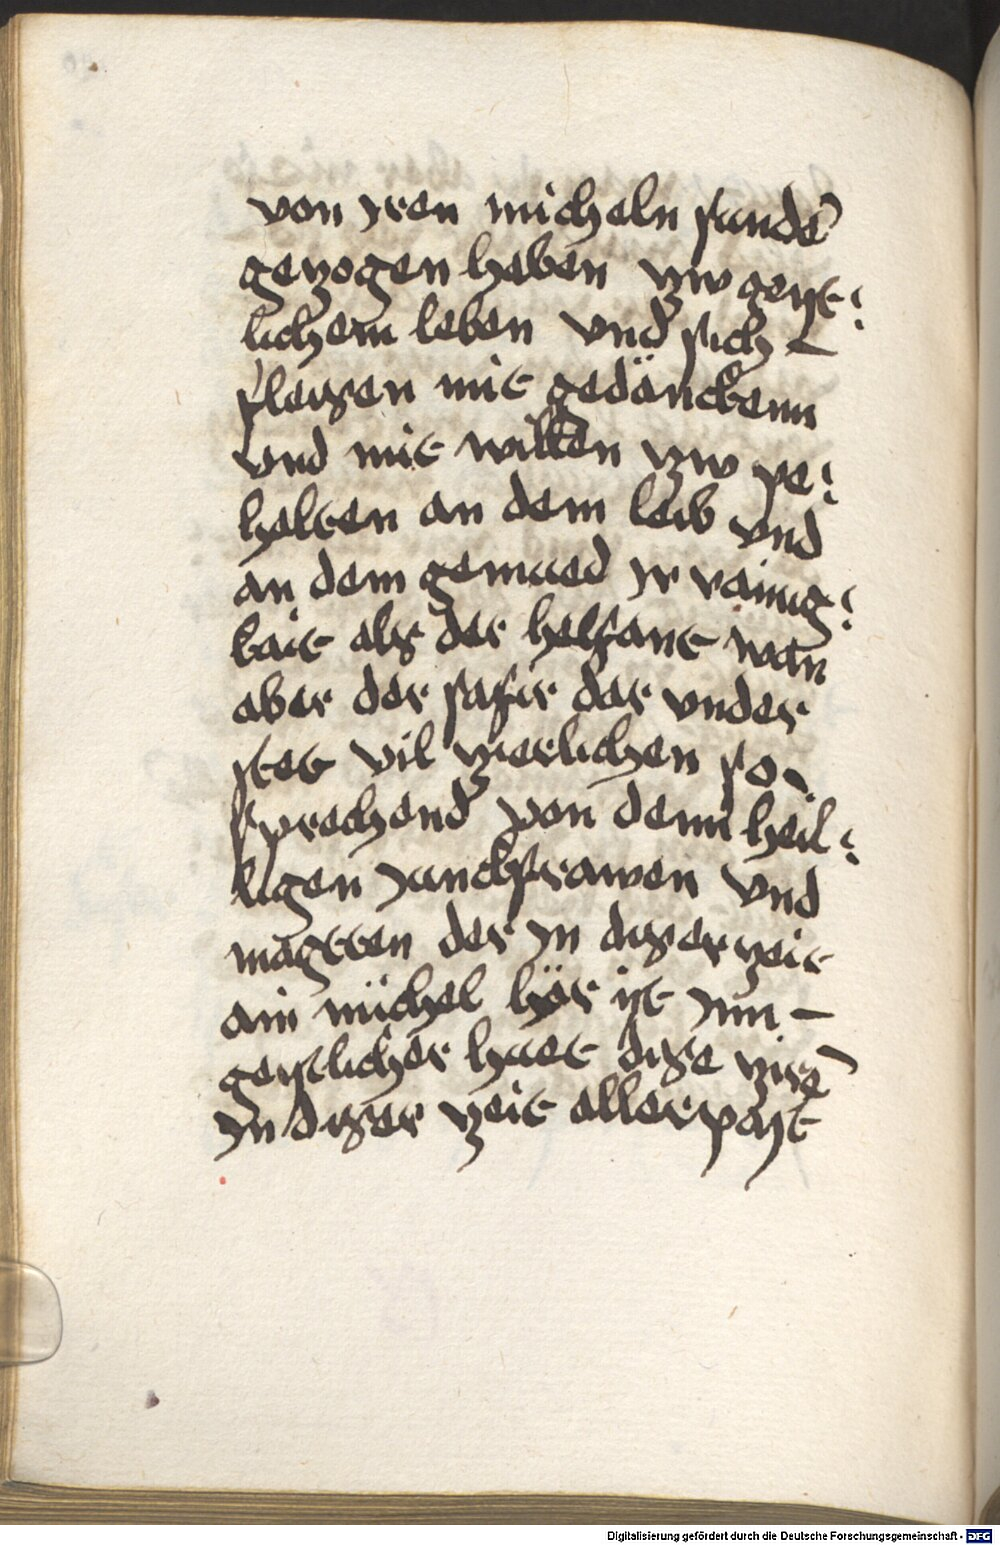 von yren micheln sundē
gezogen haben zw geist⸗
lichem leben vnd sich
fleisen mit gedäncken
vnd mit willen zw pe⸗
halten an dem leib vnd
an dem gemued yr rainig⸗
kait als der helfant wan
aber der safir dar vnder
stet vil zierlichen so
sprechend von denn heil⸗
ligen junckfrawen vnd
magten der yn diser zeit
ain michel hör ist ynn
geistlicher huet dise zirē
yn diser zeit allerpast
Digitalisierung gefördert durch die Deutsche Forschungsgemeinschaft - DFG